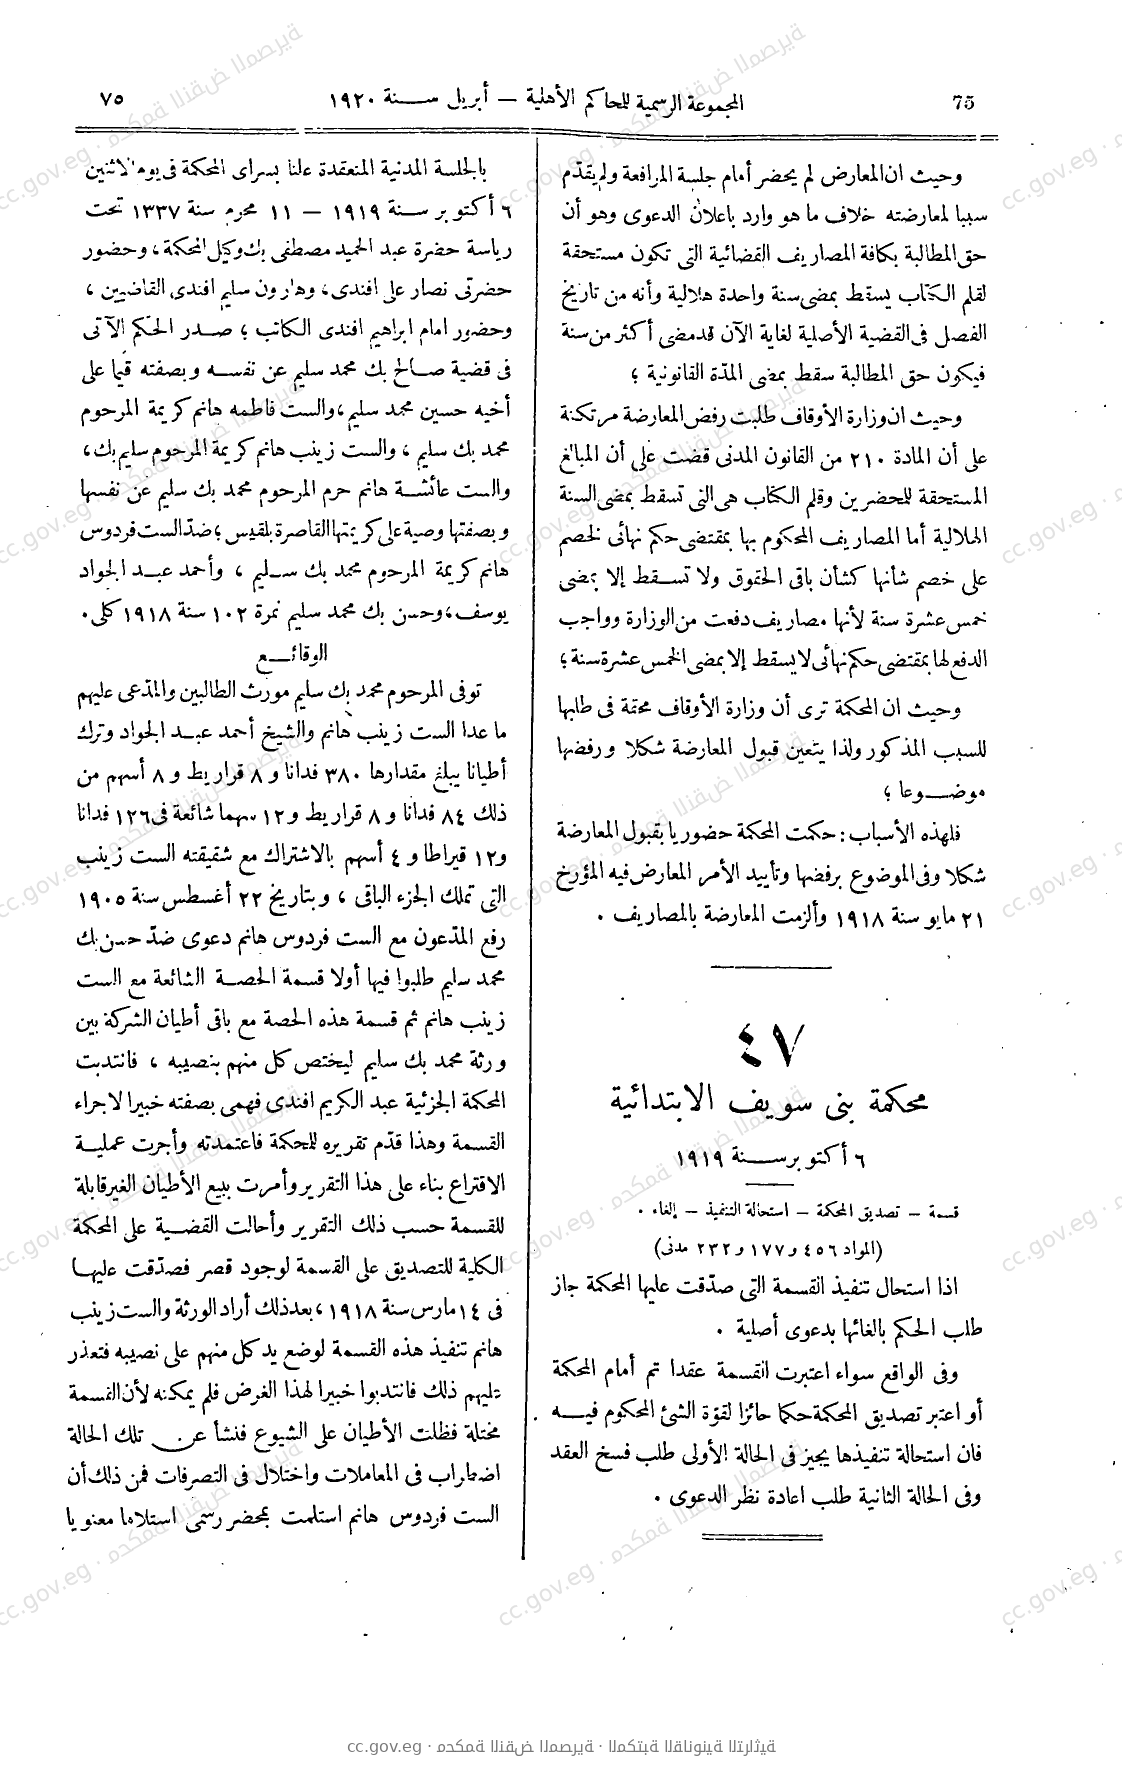 75
المجموعة الرسمية للمحاكم الأهلية – أبريل سنة ١٩٢٠
٧٥
وحيث ان المعارض لم يحضر أمام جلسة المرافعة ولم يقدّم
سببا لمعارضته خلاف ما هو وارد باعلان الدعوى وهو أن
حق المطالبة بكافة المصاريف القضائية التى تكون مستحقة
لقلم الكتاب يسقط بمضى سنة واحدة هلالية وأنه من تاريخ
الفصل فى القضية الأصلية لغاية الآن قد مضى أكثر من سنة
فيكون حق المطالبة سقط بمضى المدّة القانونية ؛
وحيث ان وزارة الأوقاف طلبت رفض المعارضة مرتكنة
على أن المادة ٢١٠ من القانون المدنى قضت على أن المبالغ
المستحقة للمحضرين وقلم الكتاب هى التى تسقط بمضى السنة
الهلالية أما المصاريف المحكوم بها بمقتضى حكم نهائى لخصم
على خصم شأنها كشأن باقى الحقوق ولا تسقط إلا بمضى
خمس عشرة سنة لأنها مصاريف دفعت من الوزارة وواجب
الدفع لها بمقتضى حكم نهائى لا يسقط إلا بمضى الخمس عشرة سنة ؛
وحيث ان المحكمة ترى أن وزارة الأوقاف محقة فى طلبها
للسبب المذكور ولذا يتعين قبول المعارضة شكلا ورفضها
موضوعا ؛
فلهذه الأسباب : حكمت المحكمة حضوريا بقبول المعارضة
شكلا وفى الموضوع برفضها وتأييد الأمر المعارض فيه المؤرخ
٢١ مايو سنة ١٩١٨ وألزمت المعارضة بالمصاريف .
٤٧
محكمة بنى سويف الابتدائية
٦ أكتوبر سنة ١٩١٩
قسمة – تصديق المحكمة – استحالة التنفيذ – إلغاء .
(المواد ٤٥٦ و ١٧٧ و ٢٣٢ مدنى)
اذا استحال تنفيذ القسمة التى صدّقت عليها المحكمة جاز
طلب الحكم بالغائها بدعوى أصلية .
وفى الواقع سواء اعتبرت القسمة عقدا تم أمام المحكمة
أو اعتبر تصديق المحكمة حكما حائزا لقوّة الشئ المحكوم فيه
فان استحالة تنفيذها يجيز فى الحالة الأولى طلب فسخ العقد
وفى الحالة الثانية طلب اعادة نظر الدعوى .
بالجلسة المدنية المنعقدة علنا بسراى المحكمة فى يوم الاثنين
٦ أكتوبر سنة ١٩١٩ – ١١ محرم سنة ١٣٣٧ تحت
رياسة حضرة عبد الحميد مصطفى بك وكيل المحكمة ، وحضور
حضرتى نصار على افندى ، وهارون سليم افندى القاضيين ،
وحضور امام ابراهيم افندى الكاتب ؛ صدر الحكم الآتى
فى قضية صالح بك محمد سليم عن نفسه وبصفته قيما على
أخيه حسين محمد سليم ، والست فاطمه هانم كريمة المرحوم
محمد بك سليم ، والست زينب هانم كريمة المرحوم سليم بك ،
والست عائشة هانم حرم المرحوم محمد بك سليم عن نفسها
وبصفتها وصية على كريمتها القاصرة بلقيس ؛ ضدّ الست فردوس
هانم كريمة المرحوم محمد بك سليم ، وأحمد عبد الجواد
يوسف ، وحسن بك محمد سليم نمرة ١٠٢ سنة ١٩١٨ كلى .
الوقائع
توفى المرحوم محمد بك سليم مورث الطالبين والمدّعى عليهم
ما عدا الست زينب هانم والشيخ أحمد عبد الجواد وترك
أطيانا يبلغ مقدارها ٣٨٠ فدانا و ٨ قراريط و ٨ أسهم من
ذلك ٨٤ فدانا و ٨ قراريط و ١٢ سهما شائعة فى ١٢٦ فدانا
و ١٢ قيراطا و ٤ أسهم بالاشتراك مع شقيقته الست زينب
التى تملك الجزء الباقى ، وبتاريخ ٢٢ أغسطس سنة ١٩٠٥
رفع المدّعون مع الست فردوس هانم دعوى ضدّ حسن بك
محمد سليم طلبوا فيها أولا قسمة الحصة الشائعة مع الست
زينب هانم ثم قسمة هذه الحصة مع باقى أطيان الشركة بين
ورثة محمد بك سليم ليختص كل منهم بنصيبه ، فانتدبت
المحكمة الجزئية عبد الكريم افندى فهمى بصفته خبيرا لاجراء
القسمة وهذا قدّم تقريره للمحكمة فاعتمدته وأجرت عملية
الاقتراع بناء على هذا التقرير وأمرت ببيع الأطيان الغير قابلة
للقسمة حسب ذلك التقرير وأحالت القضية على المحكمة
الكلية للتصديق على القسمة لوجود قصر فصدّقت عليها
فى ١٤ مارس سنة ١٩١٨ ، بعد ذلك أراد الورثة والست زينب
هانم تنفيذ هذه القسمة لوضع يد كل منهم على نصيبه فتعذر
عليهم ذلك فانتدبوا خبيرا لهذا الغرض فلم يمكنه لأن القسمة
مختلة فظلت الأطيان على الشيوع فنشأ عن تلك الحالة
اضطراب فى المعاملات واختلال فى التصرفات فمن ذلك أن
الست فردوس هانم استلمت بمحضر رسمى استلاما معنويا
cc.gov.eg · محكمة النقض المصرية · المكتبة القانونية التراثية